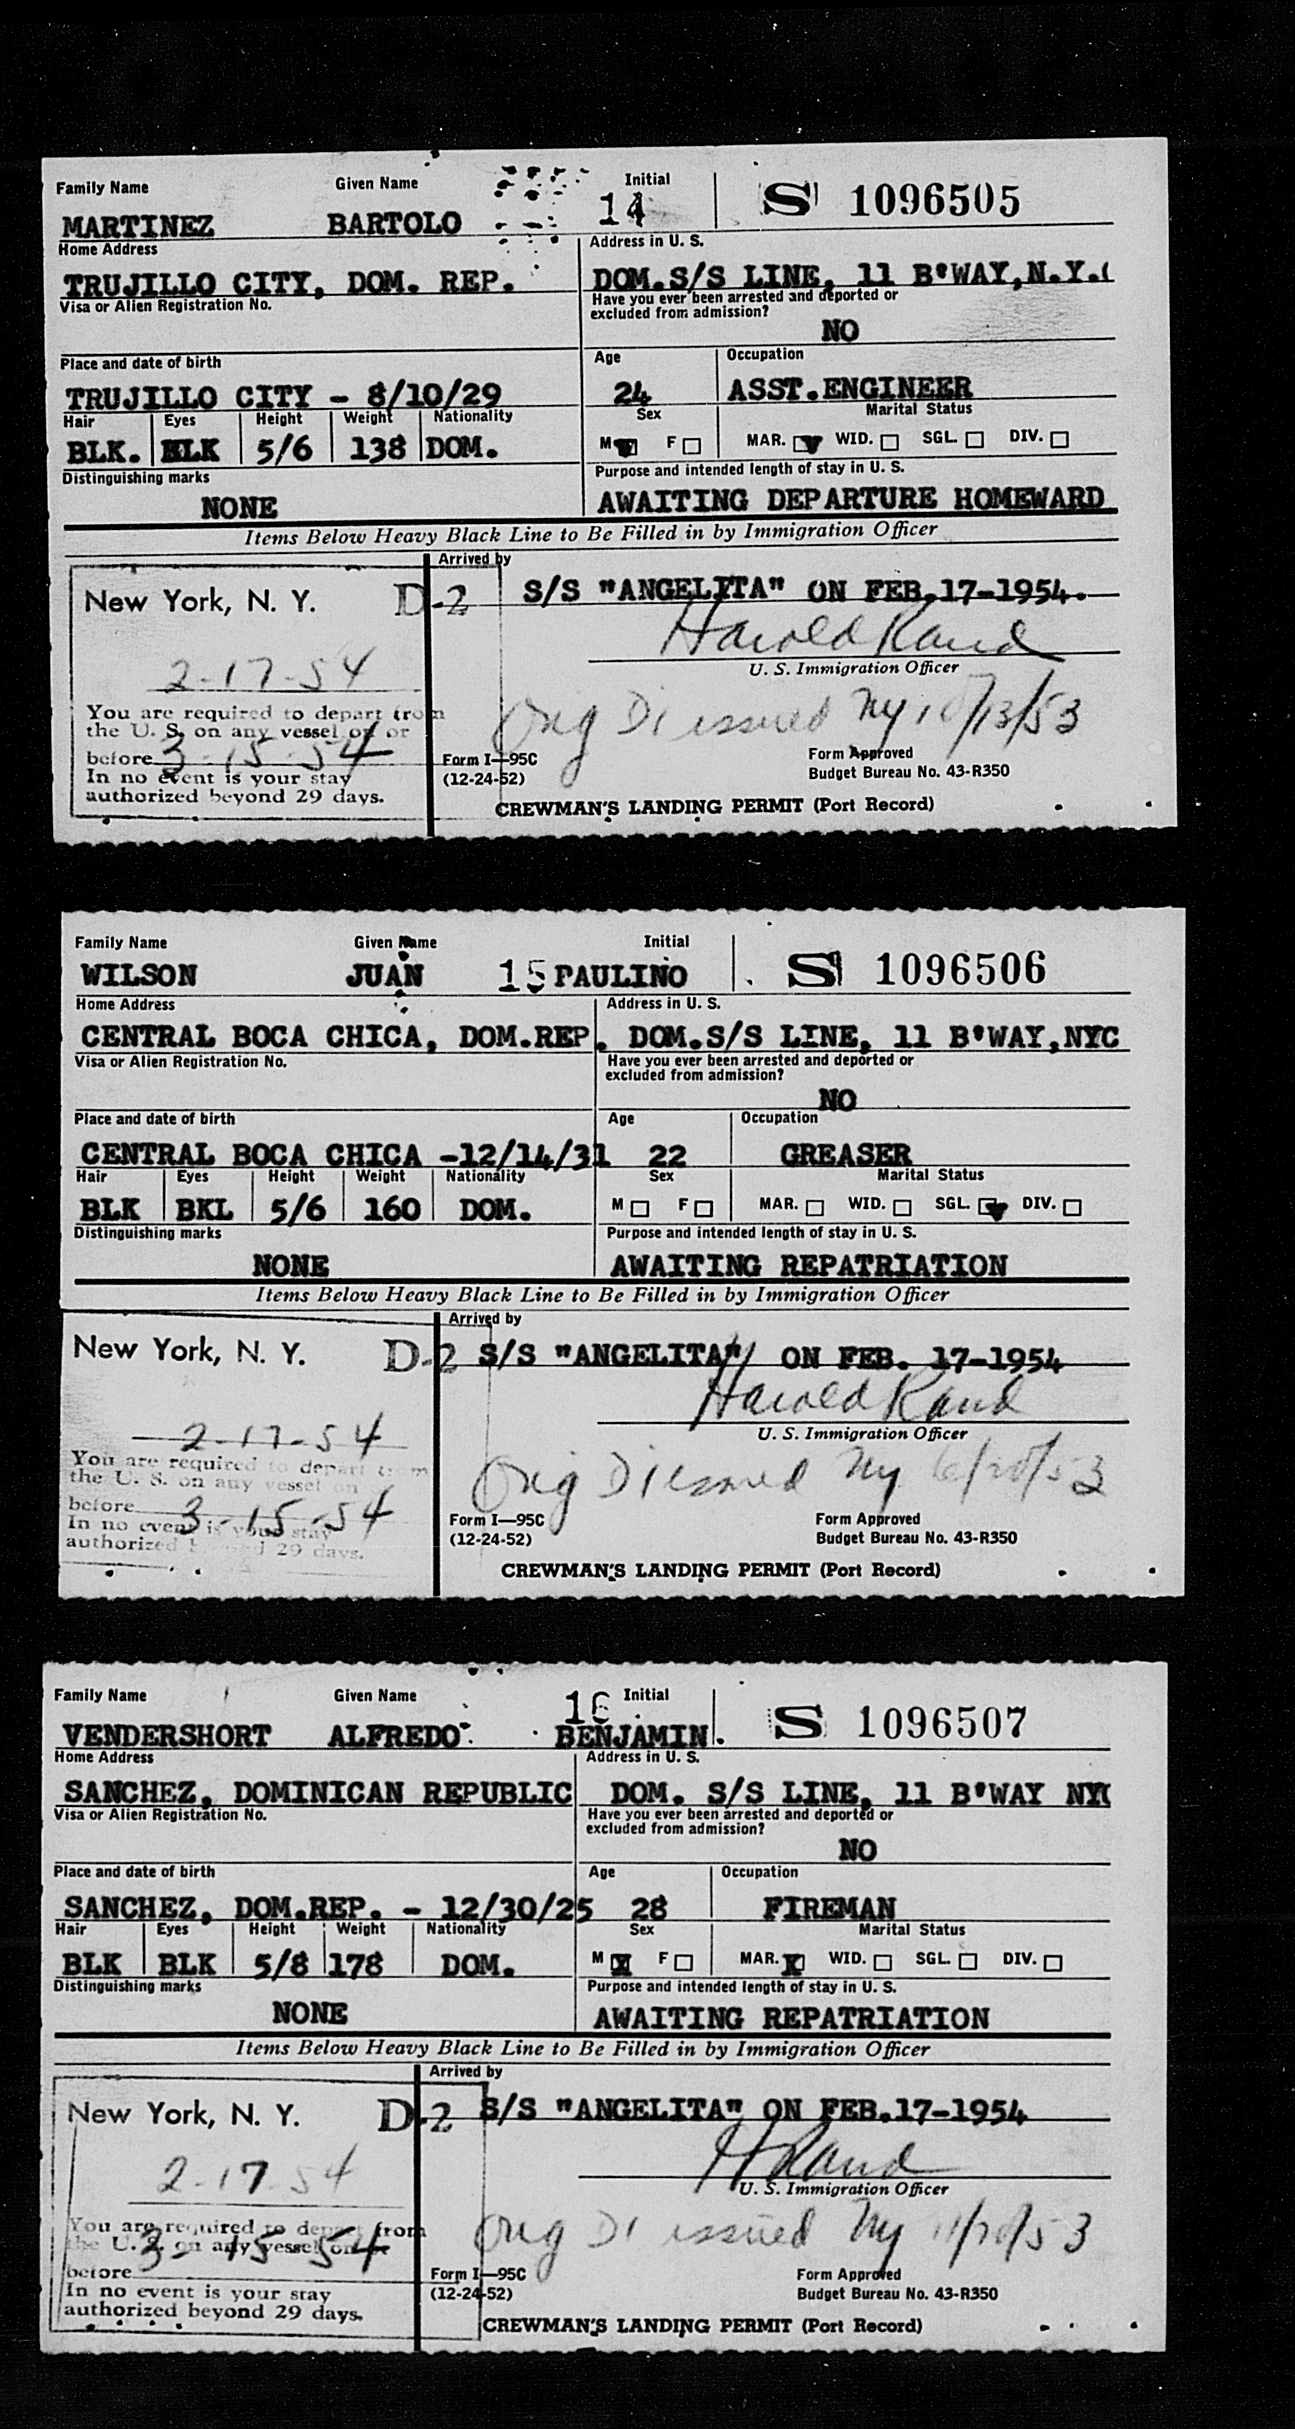 Family Name Given Name Initial
MARTINEZ BARTOLO 14 S 1096505
Home Address Address in U. S.
TRUJILLO CITY, DOM. REP. DOM.S/S LINE, 11 B'WAY,N.Y.(
Visa or Alien Registration No. Have you ever been arrested and deported or
excluded from admission?
NO
Place and date of birth Age Occupation
TRUJILLO CITY - 8/10/29 24 ASST.ENGINEER
Hair Eyes Height Weight Nationality Sex Marital Status
BLK. BLK 5/6 138 DOM. M F MAR. WID. SGL. DIV.
Distinguishing marks Purpose and intended length of stay in U. S.
NONE AWAITING DEPARTURE HOMEWARD
Items Below Heavy Black Line to Be Filled in by Immigration Officer
Arrived by
New York, N. Y. D-2 S/S "ANGELITA" ON FEB.17-1954.
Harold Rand
2-17-54 U. S. Immigration Officer
You are required to depart from Orig D1 issued NY 10/13/53
the U. S. on any vessel on or
before 3-15-54 Form I—95C Form Approved
In no event is your stay (12-24-52) Budget Bureau No. 43-R350
authorized beyond 29 days.
CREWMAN'S LANDING PERMIT (Port Record)
Family Name Given Name Initial
WILSON JUAN 15 PAULINO S 1096506
Home Address Address in U. S.
CENTRAL BOCA CHICA, DOM.REP. DOM.S/S LINE, 11 B'WAY,NYC
Visa or Alien Registration No. Have you ever been arrested and deported or
excluded from admission?
NO
Place and date of birth Age Occupation
CENTRAL BOCA CHICA -12/14/31 22 GREASER
Hair Eyes Height Weight Nationality Sex Marital Status
BLK BKL 5/6 160 DOM. M F MAR. WID. SGL. DIV.
Distinguishing marks Purpose and intended length of stay in U. S.
NONE AWAITING REPATRIATION
Items Below Heavy Black Line to Be Filled in by Immigration Officer
Arrived by
New York, N. Y. D-2 S/S "ANGELITA" ON FEB. 17-1954
Harold Rand
2-17-54 U. S. Immigration Officer
You are required to depart from Orig D1 issued NY
the U. S. on any vessel on
before 3-15-54 Form I—95C Form Approved
In no event is your stay (12-24-52) Budget Bureau No. 43-R350
authorized beyond 29 days.
CREWMAN'S LANDING PERMIT (Port Record)
Family Name Given Name Initial
VENDERSHORT ALFREDO 16 BENJAMIN. S 1096507
Home Address Address in U. S.
SANCHEZ, DOMINICAN REPUBLIC DOM. S/S LINE, 11 B'WAY NYC
Visa or Alien Registration No. Have you ever been arrested and deported or
excluded from admission?
NO
Place and date of birth Age Occupation
SANCHEZ, DOM.REP. - 12/30/25 28 FIREMAN
Hair Eyes Height Weight Nationality Sex Marital Status
BLK BLK 5/8 178 DOM. M X F MAR. X WID. SGL. DIV.
Distinguishing marks Purpose and intended length of stay in U. S.
NONE AWAITING REPATRIATION
Items Below Heavy Black Line to Be Filled in by Immigration Officer
Arrived by
New York, N. Y. D-2 S/S "ANGELITA" ON FEB.17-1954
H Rand
2-17-54 U. S. Immigration Officer
You are required to depart from Orig D1 issued NY
the U. S. on any vessel on or
before 3-15-54 Form I—95C Form Approved
In no event is your stay (12-24-52) Budget Bureau No. 43-R350
authorized beyond 29 days.
CREWMAN'S LANDING PERMIT (Port Record)